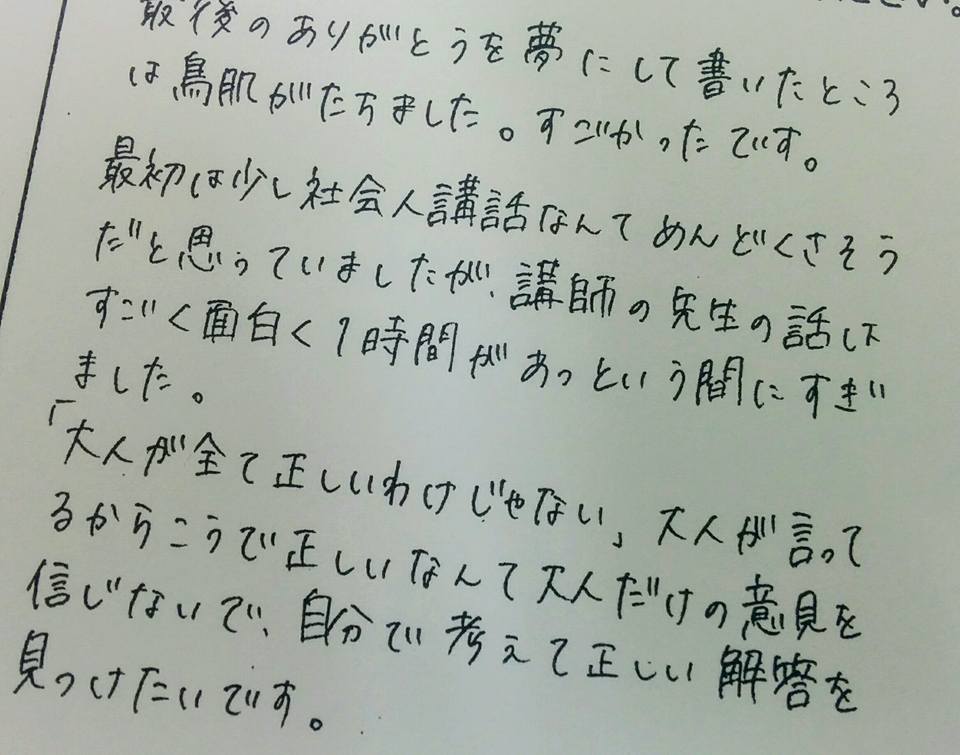 ださい。
最後のありがとうを夢にして書いたところ
は鳥肌がたちました。すごかったです。
最初は少し社会人講話なんてめんどくさそう
だと思っていましたが、講師の先生の話は
すごく面白く1時間があっという間にすぎ
ました。
「大人が全て正しいわけじゃない」大人が言って
るからこうで正しいなんて大人だけの意見を
信じないで、自分で考えて正しい解答を
見つけたいです。